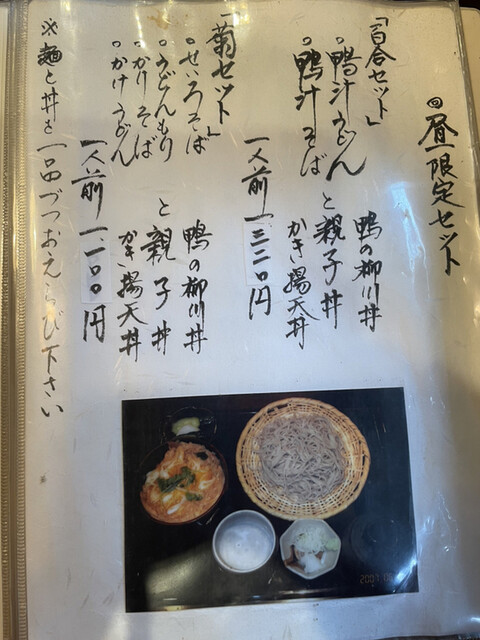 回昼限定セット
「百合セット」
。鴨汁うどん
。鴨汁そば
と
鴨の柳川丼
親子丼
かき揚天丼
一人前一、三二〇円
「菊セット」
。せいろそば
。うどんもり
。かけそば
。かけうどん
と
鴨の柳川丼
親子丼
かき揚天丼
一人前一、一〇〇円
※麺と丼を一品づつおえらび下さい